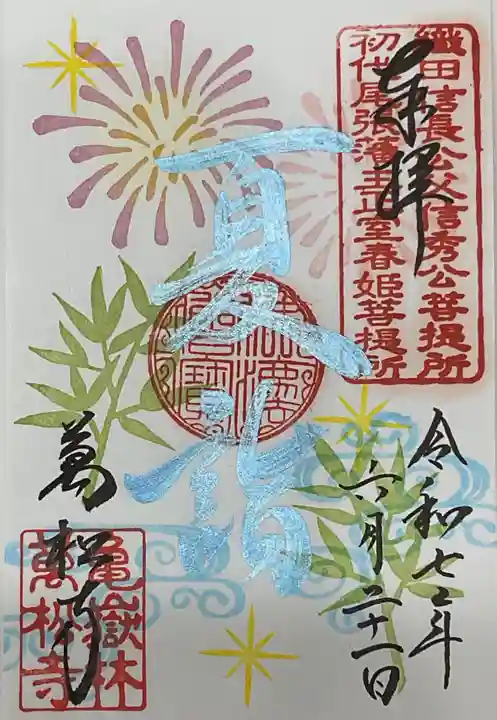 奉拝
織田信長公父信秀公菩提所
初代尾張藩主正室春姫菩提所
令和七年
六月二十一日
夏詣
萬松寺
亀嶽林
萬松寺